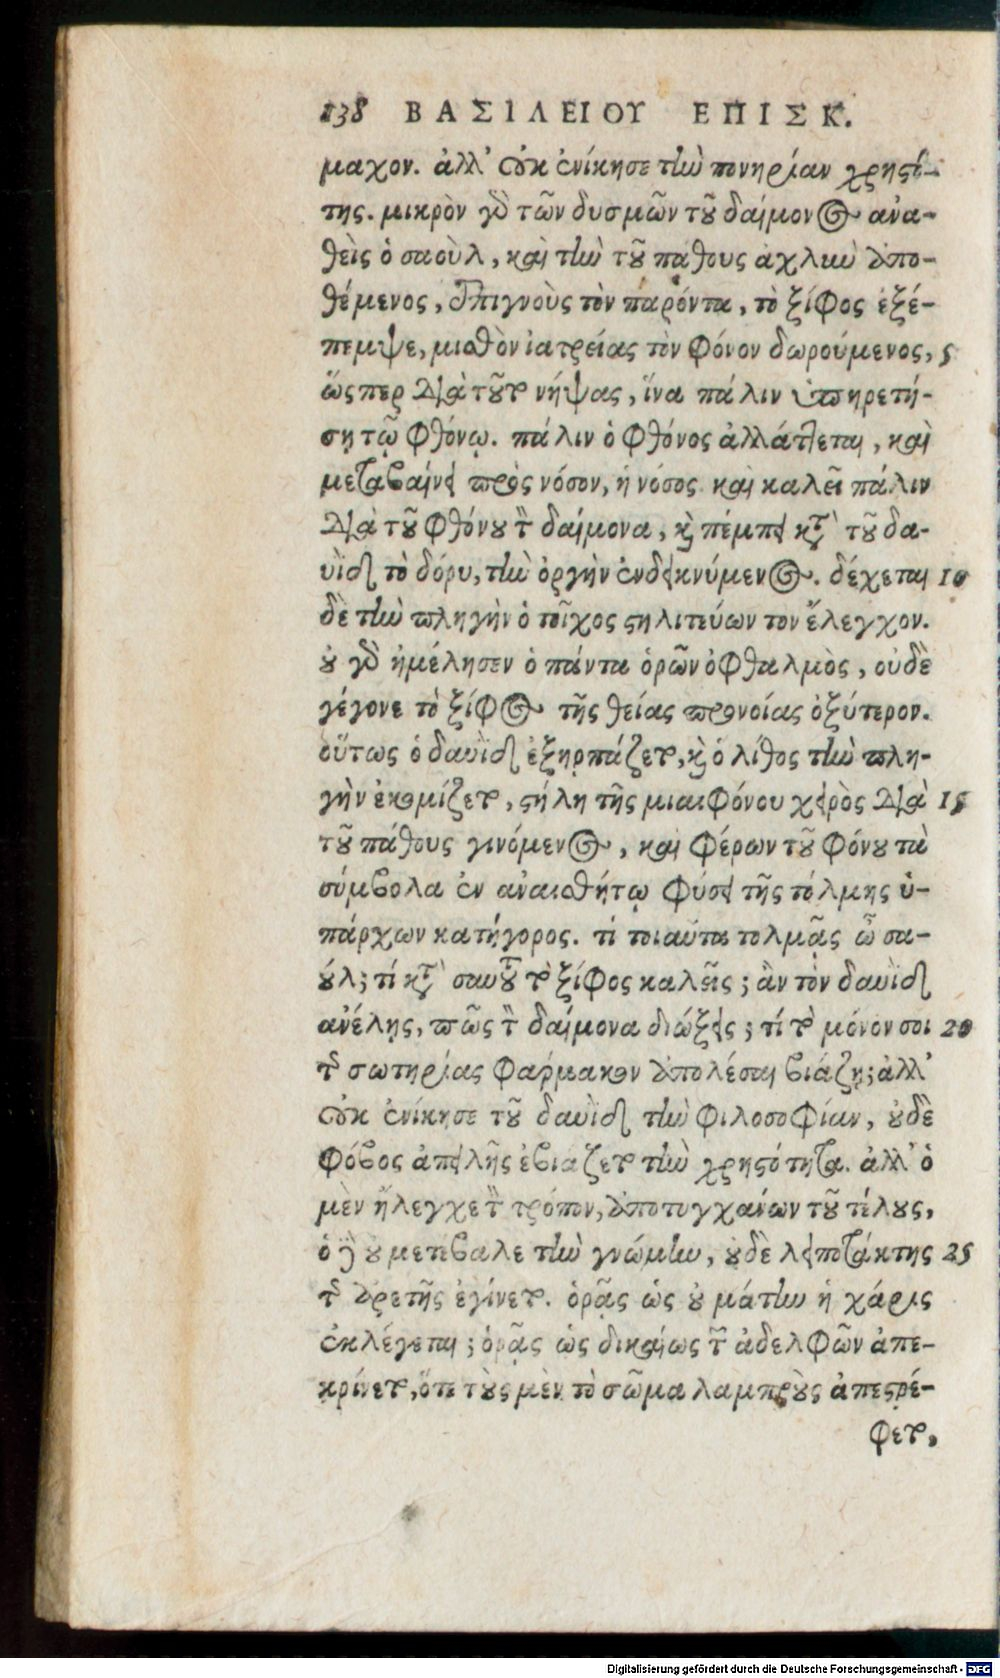 138 ΒΑΣΙΛΕΙΟΥ ΕΠΙΣΚ.
μαχον. ἀλλ' οὐκ ἐνίκησε τὴν πονηρίαν χρηστό-
της. μικρὸν γὸ τῶν δυσμῶν τοῦ δαίμονος ἀνα-
θεὶς ὁ σαοὺλ, καὶ τὴν τοῦ πάθους ἀχλὺν ἀπο-
θέμενος, ἐπιγνοὺς τὸν παρόντα, τὸ ξίφος ἐξέ-
πεμψε, μισθὸν ἰατρείας τὸν φόνον δωρούμενος, 5
ὥσπερ διὰ τοῦτο νήψας, ἵνα πάλιν ὑπηρετή-
σῃ τῷ φθόνῳ. πάλιν ὁ φθόνος ἀλλάττεται, καὶ
μεταβαίνει πρὸς νόσον, ἡ νόσος καὶ καλεῖ πάλιν
διὰ τοῦ φθόνου τὸν δαίμονα, καὶ πέμπει κατὰ τοῦ δα-
υῒδ τὸ δόρυ, τὴν ὀργὴν ἐνδεικνύμενος. δέχεται 10
δὲ τὴν πληγὴν ὁ τοῖχος στηλιτεύων τον ἔλεγχον.
οὐ γὸ ἠμέλησεν ὁ πάντα ὁρῶν ὀφθαλμὸς, οὐδὲ
γέγονε τὸ ξίφος τῆς θείας προνοίας ὀξύτερον.
οὕτως ὁ δαυῒδ ἐξηρπάζετο, καὶ ὁ λίθος τὴν πλη-
γὴν ἐκομίζετο, στήλη τῆς μιαιφόνου χειρὸς διὰ 15
τοῦ πάθους γινόμενος, καὶ φέρων τοῦ φόνου τὰ
σύμβολα ἐν ἀναισθήτῳ φύσει τῆς τόλμης ὑ-
πάρχων κατήγορος. τί τοιαῦτα τολμᾷς ὦ σα-
ούλ; τί κατὰ σαυτοῦ τὸ ξίφος καλεῖς; ἂν τὸν δαυῒδ
ἀνέλῃς, πῶς τὸν δαίμονα διώξεις; τί τὸ μόνον σοι 20
τῆς σωτηρίας φάρμακον ἀπολέσαι βιάζῃ; ἀλλ'
οὐκ ἐνίκησε τοῦ δαυῒδ τὴν φιλοσοφίαν, οὐδὲ
φόβος ἀπειλῆς ἐβιάζετο τὴν χρηστότητα. ἀλλ' ὁ
μὲν ἤλεγχε τὸν τρόπον, ἀποτυγχάνων τοῦ τέλους,
ὁ δὲ οὐ μετέβαλε τὴν γνώμην, οὐδὲ λειποτάκτης 25
τῆς ἀρετῆς ἐγίνετο. ὁρᾷς ὡς οὐ μάτην ἡ χάρις
ἐκλέγεται; ὁρᾷς ὡς δικαίως τῶν ἀδελφῶν ἀπε-
κρίνετο, ὅτε τοὺς μὲν τὸ σῶμα λαμπροὺς ἀπεστρέ-
φετο,
Digitalisierung gefördert durch die Deutsche Forschungsgemeinschaft - DFG